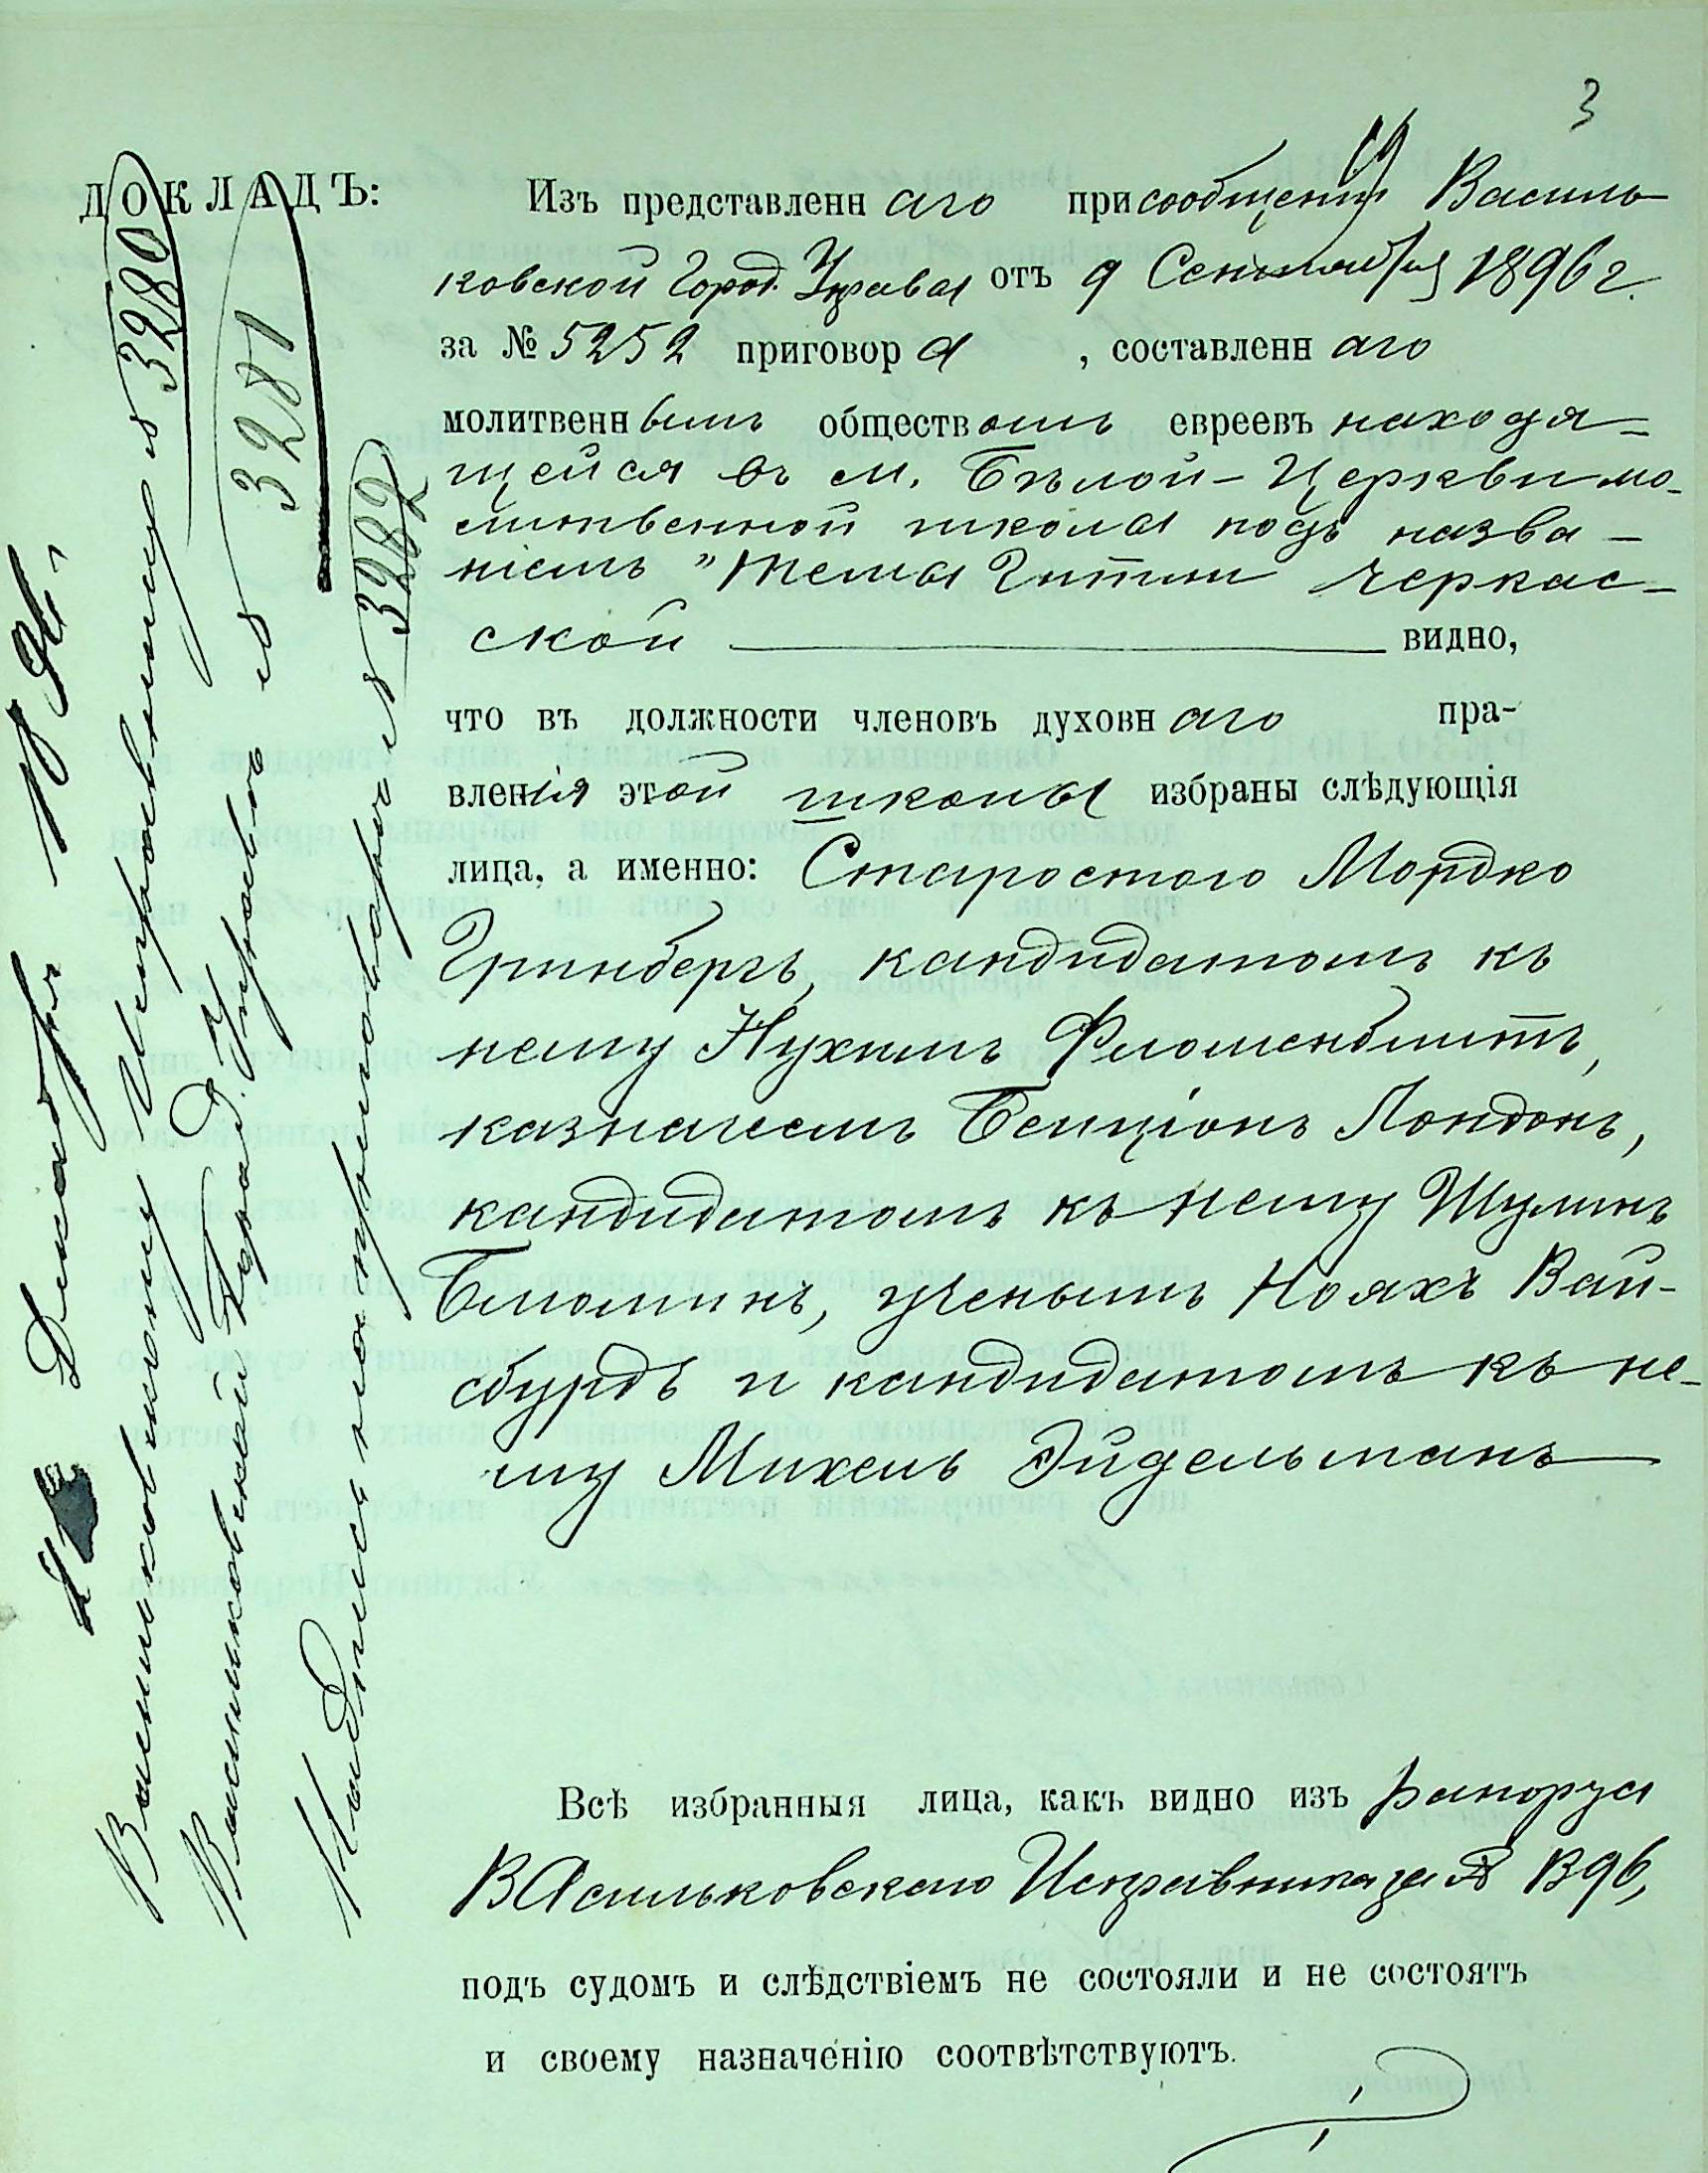 3
ДОКЛАДЪ:
Изъ представленнаго присообщеніи Василь
ковской Город. Управы отъ 9 Сентября 1896 г.
за № 5252 приговора , составленнаго
молитвеннымъ обществомъ евреевъ находя-
щейся въ м. Бѣлой-Церкви мо-
литвенной школы подъ назва-
ніемъ "Темы Гитли Черкас-
ской видно,
что въ должности членовъ духовнаго пра-
вленія этой школы избраны слѣдующія
лица, а именно: Старостою Мордко
Гринбергъ, кандидатомъ къ
нему Нухимъ Флюменблитъ,
казначеемъ Бенціонъ Лондонъ,
кандидатомъ къ нему Шулимъ
Блюминъ, ученымъ Нояхъ Вай-
сбурдъ и кандидатомъ къ не-
му Михель Эйдельманъ
Всѣ избранныя лица, какъ видно изъ рапорта
Васильковскаго Исправника за №
подъ судомъ и слѣдствіемъ не состояли и не состоятъ
и своему назначенію соотвѣтствуютъ.
Декабря
Васильковскому Исправнику № 3280
Васильковской Город. Управѣ № 3281
3282